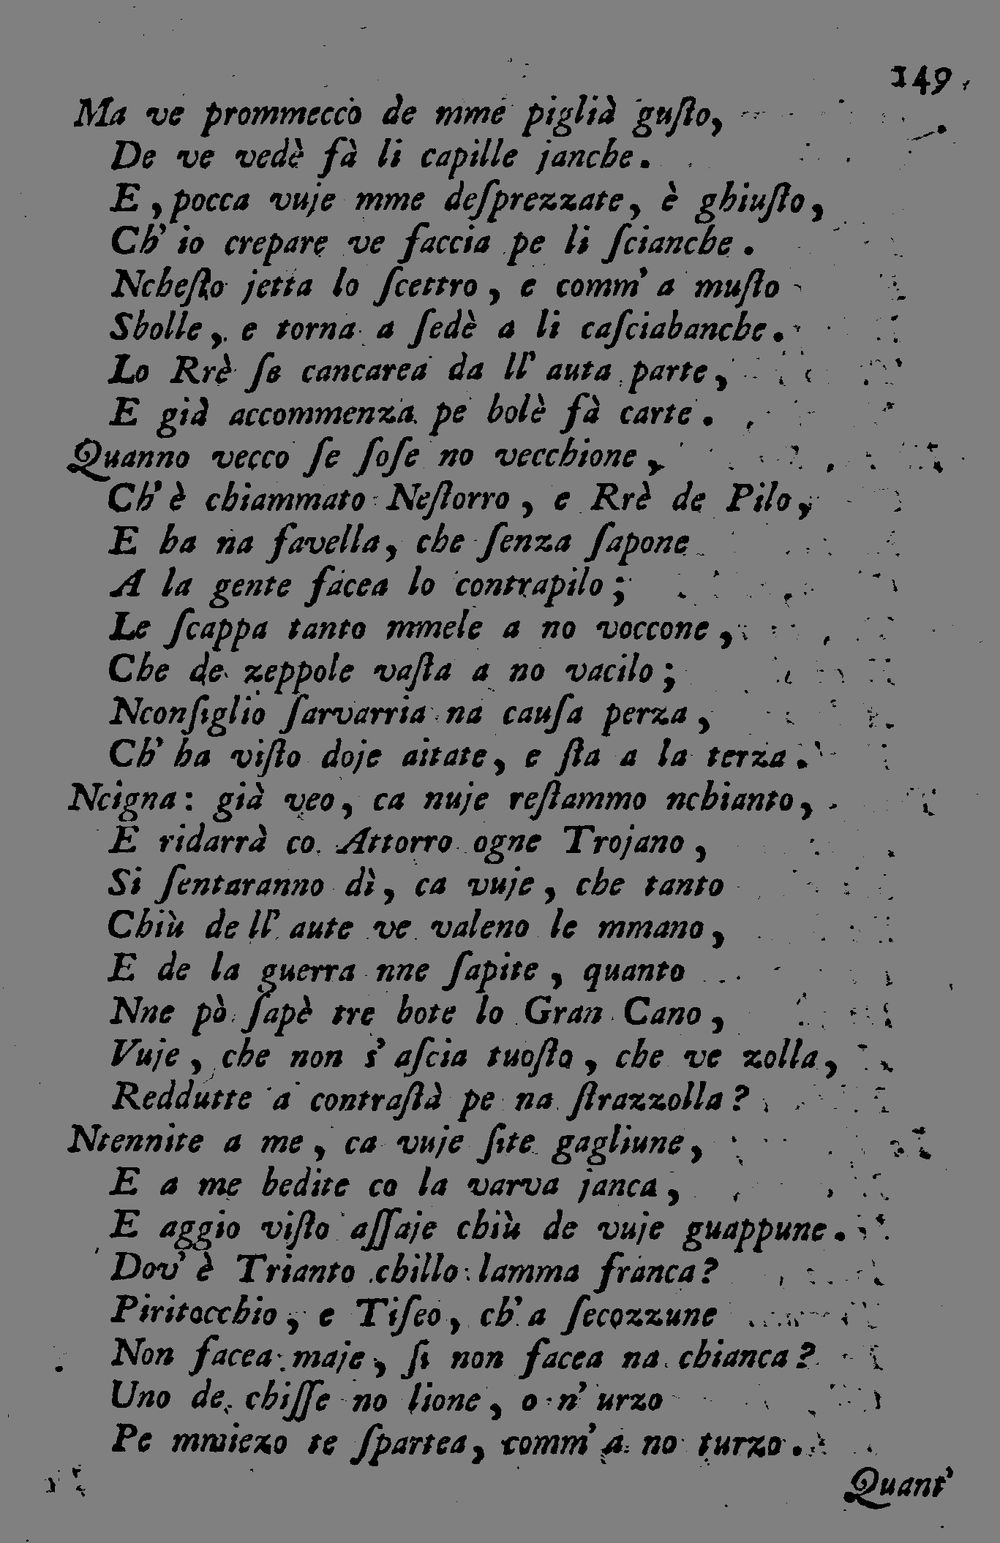 149.
Ma ve prommecco de mme piglià guſto,
De ve vedè fà li capille janche.
E, pocca vuje mme deſprezzate, è ghiuſto,
Ch' io crepare ve faccia pe li ſcianche.
Ncheſto jetta lo ſcettro, e comm' a muſto
Sbolle, e torna a ſedè a li caſciabanche.
Lo Rrè ſe cancarea da ll' auta parte,
E già accommenza pe bolè fà carte.
Quanno vecco ſe ſoſe no vecchione,
Ch' è chiammato Neſtorro, e Rrè de Pilo,
E ha na favella, che ſenza ſapone
A la gente facea lo contrapilo;
Le ſcappa tanto mmele a no voccone,
Che de zeppole vaſta a no vacilo;
Nconſiglio ſarvarria na cauſa perza,
Ch' ha viſto doje aitate, e ſta a la terza.
Ncigna: già veo, ca nuje reſtammo nchianto,
E ridarrà co Attorro ogne Trojano,
Si ſentaranno dì, ca vuje, che tanto
Chiù de ll' aute ve valeno le mmano,
E de la guerra nne ſapite, quanto
Nne pò ſapè tre bote lo Gran Cano,
Vuje, che non s' aſcia tuoſto, che ve zolla,
Reddutte a contraſtà pe na ſtrazzolla?
Ntennite a me, ca vuje ſite gagliune,
E a me bedite co la varva janca,
E aggio viſto aſſaje chiù de vuje guappune.
Dov' è Trianto chillo lamma franca?
Piritocchio, e Tiſeo, ch' a ſecozzune
Non facea maje, ſi non facea na chianca?
Uno de chiſſe no lione, o n' urzo
Pe mmiezo te ſpartea, comm' a no turzo.
Quant'